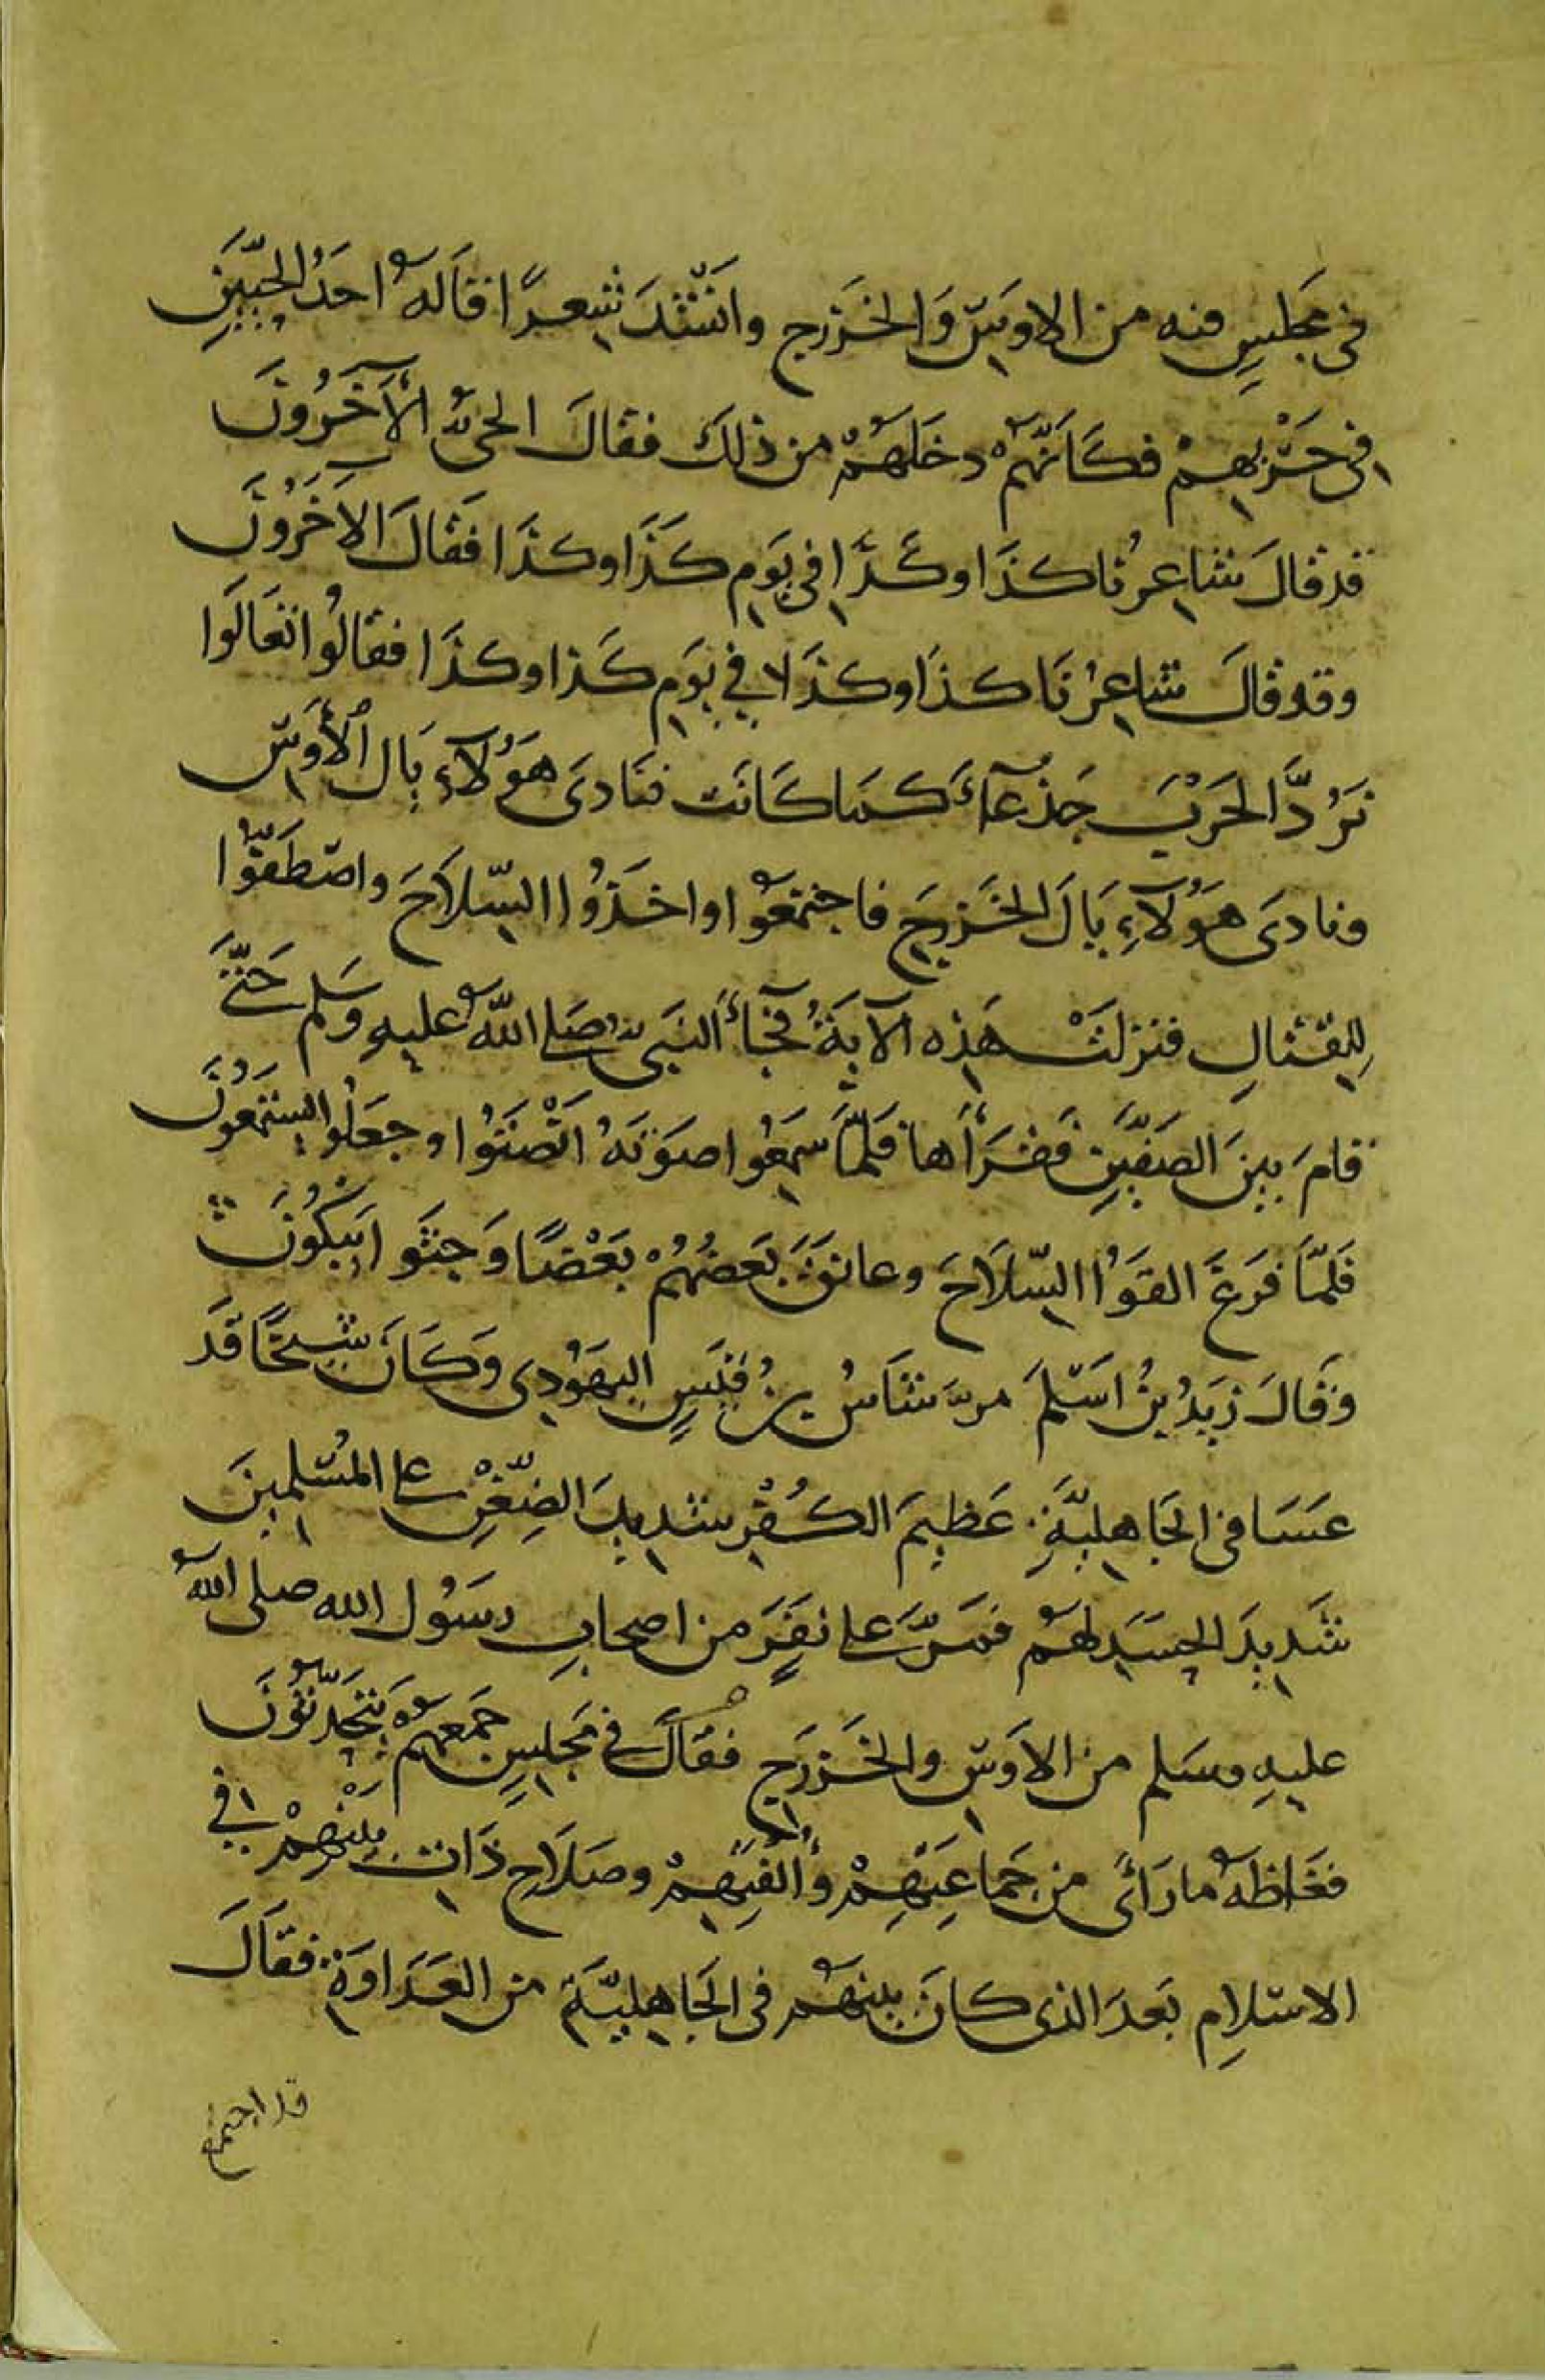 فى مَجلِسٍ فيه من الاوسِ وَالخَزرج وانشَدَ شِعرًا قالهُ احَدُ الحَيَّينِ
فى حَرْبِهِمْ فكَانَّهُمْ دخَلَهُمْ من ذلكَ فقالَ الحىُّ الآخَرُونَ
قد قالَ شاعِرُنا كذَا وكَذَا فى يَومِ كَذَا وكذَا فقَالَ الآخَرُونَ
وقد قالَ شاعِرُنَا كذَا وكذَا فِي يَومِ كَذا وكذَا فقالُوا تعَالَوا
نَرُدَّ الحَرْبَ جَذعآءَ كمَا كَانَت فنَادىَ هَؤُلآءِ يَالَ الأَوسِ
ونادىَ هَؤُلآءِ يَالَ الخَزرجِ فاجتمَعُوا واخَذُوا السِّلاَحَ واصطَفُّوا
لِلقِتالِ فنزلتْ هَذِه الآيَةُ فجَآءَ النَبىُّ صَلى اللّهُ عليهِ وَسَلم حَتَّىَ
قامَ بينَ الصَفَّينِ فقَرَأَها فلَمَّا سَمِعُوا صَوتَهُ انْصَتُوا وجعَلُوا يستَمِعُونَ
فَلمَّا فرَغَ القَوُا السِّلاَحَ وعانَقَ بَعضُهُمْ بَعْضًا وَجثَوا يَبْكُونَ
وَقَالَ زيَدُ بنُ اسَلمَ مرَّ شَاسُ بنُ قيَسٍ اليهَوُدِى وَكَانَ شيخًا قَد
عسَا فى الجَاهِليَّةِ عَظيمَ الكُفْرِ شدِيدَ الضِّغْنِ على المُسْلِمينَ
شَدِيدَ الحسَدِ لهُم فمَرَّ على نفَرٍ من اصحابِ رسَوُل الله صلى اللهُ
عليهِ وسَلم من الاَوسِ والخَزرَجِ فقَالَ فى مَجلِسٍ جَمعَهُمْ يَتَحَدَّثوُنَ
فغَاظهُ ما رَأىَ من جَماعَتِهِمْ وأُلفَتِهِمْ وصَلاَحِ ذَاتِ بيَنِهِمْ فِي
الاسلامِ بَعدَ الذى كانَ بينهَمُ فى الجَاهِليَّةِ من العَدَاوَةِ فقَالَ
قد اجتمع